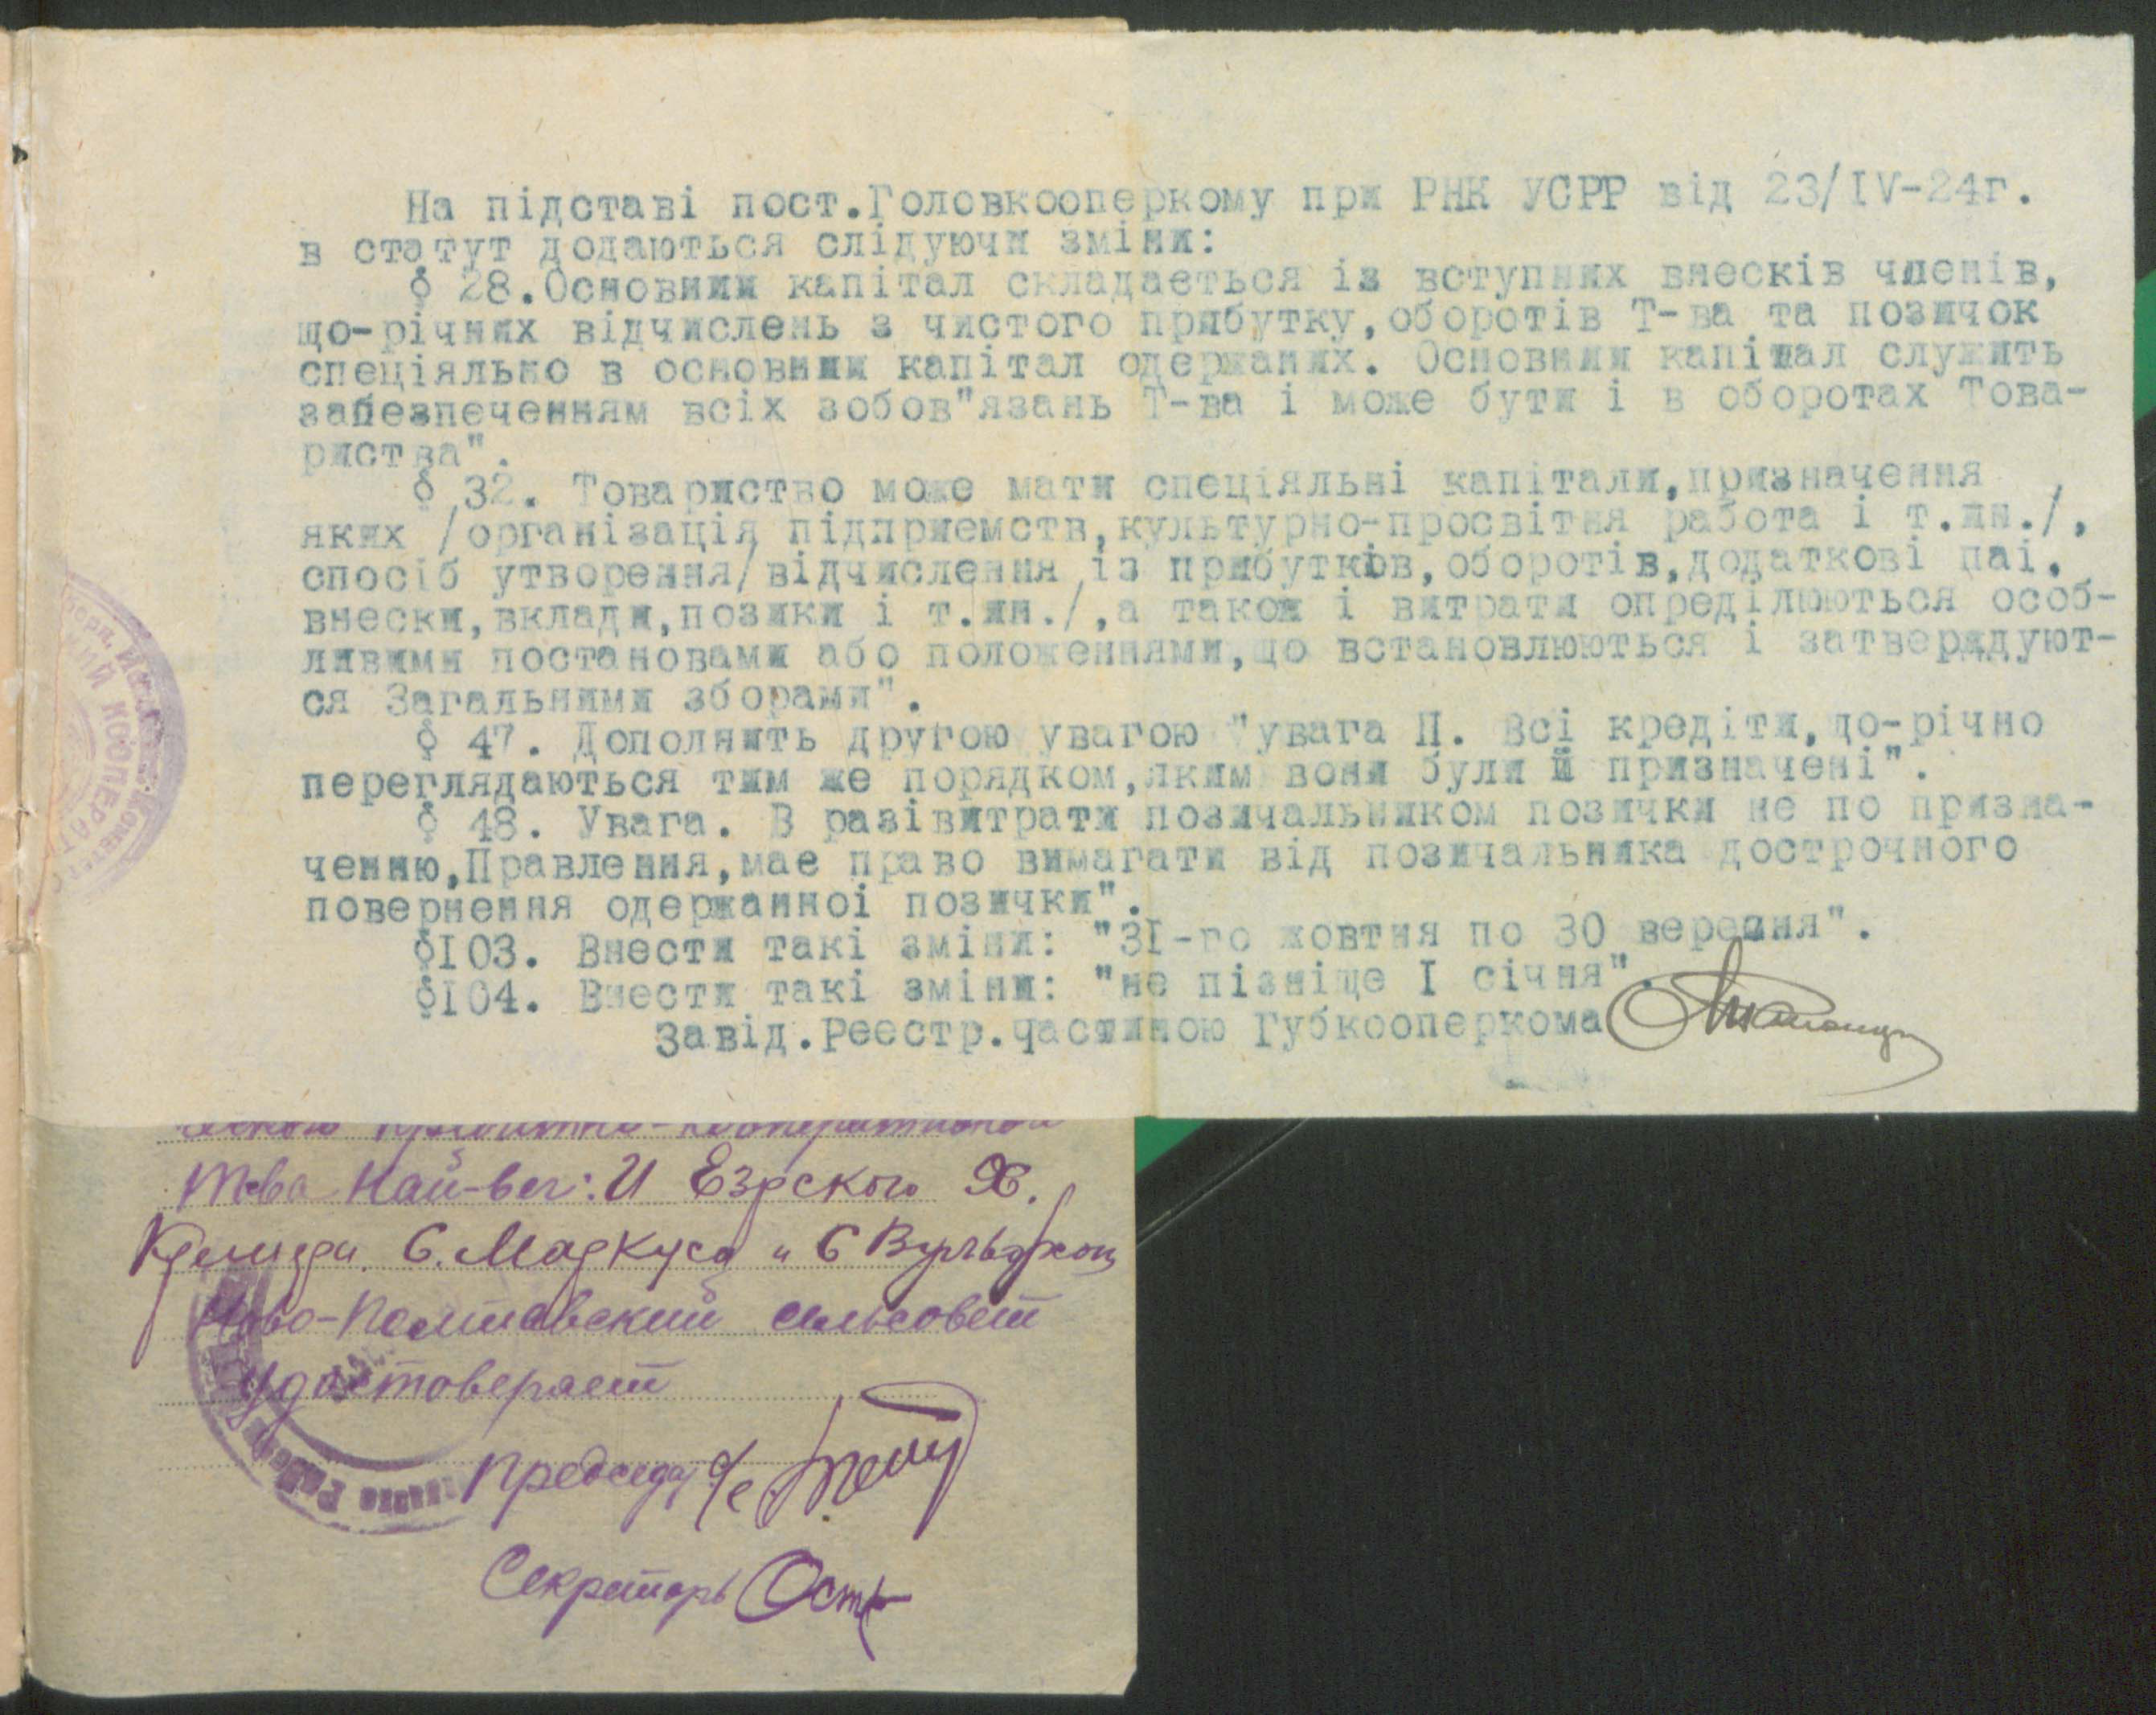 На підставі пост.Головкооперкому при РНК УСРР від 23/IV-24г.
в статут додаються слідуючи зміни:
§ 28.Основний капітал складається із вступних внесків членів,
що-річних відчислень з чистого прибутку,оборотів Т-ва та позичок
спеціяльно в основний капітал одержаних. Основний капітал служить
забезпеченням всіх зобов"язань Т-ва і може бути і в оборотах Това-
риства".
§ 32. Товариство може мати спеціяльні капітали,призначення
яких /організація підприємств,культурно-просвітня работа і т.ин./,
спосіб утворення/відчислення із прибутків,оборотів,додаткові паі,
внески,вклади,позики і т.ин./,а також і витрати опреділюються особ-
ливими постановами або положеннями,що встановлюються і затверждуют-
ся Загальними зборами".
§ 47. Дополнить другою увагою "увага II. Всі кредіти,що-річно
переглядаються тим же порядком,яким вони були й призначені".
§ 48. Увага. В разівитрати позичальником позички не по призна-
ченню,Правлення,має право вимагати від позичальника дострочного
повернення одержанноі позички".
§I03. Внести такі зміни: "ЗI-го жовтня по 30 вересня".
§I04. Внести такі зміни: "не пізніще I січня".
Завід.Реестр.частиною Губкооперкома
Т-ва Най-вег: И Езрского Х.
С. Маркуса и С Вульфсон
Ново-Полтавский сельсовет
удостоверяет
Председ с/с
Секретарь